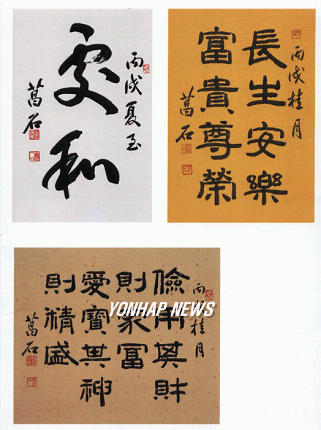 丙戌夏至
處和
長生安樂
富貴尊榮
丙戌桂月
儉用其財
則家富
愛寶其神
則精盛
丙戌桂月
YONHAP NEWS